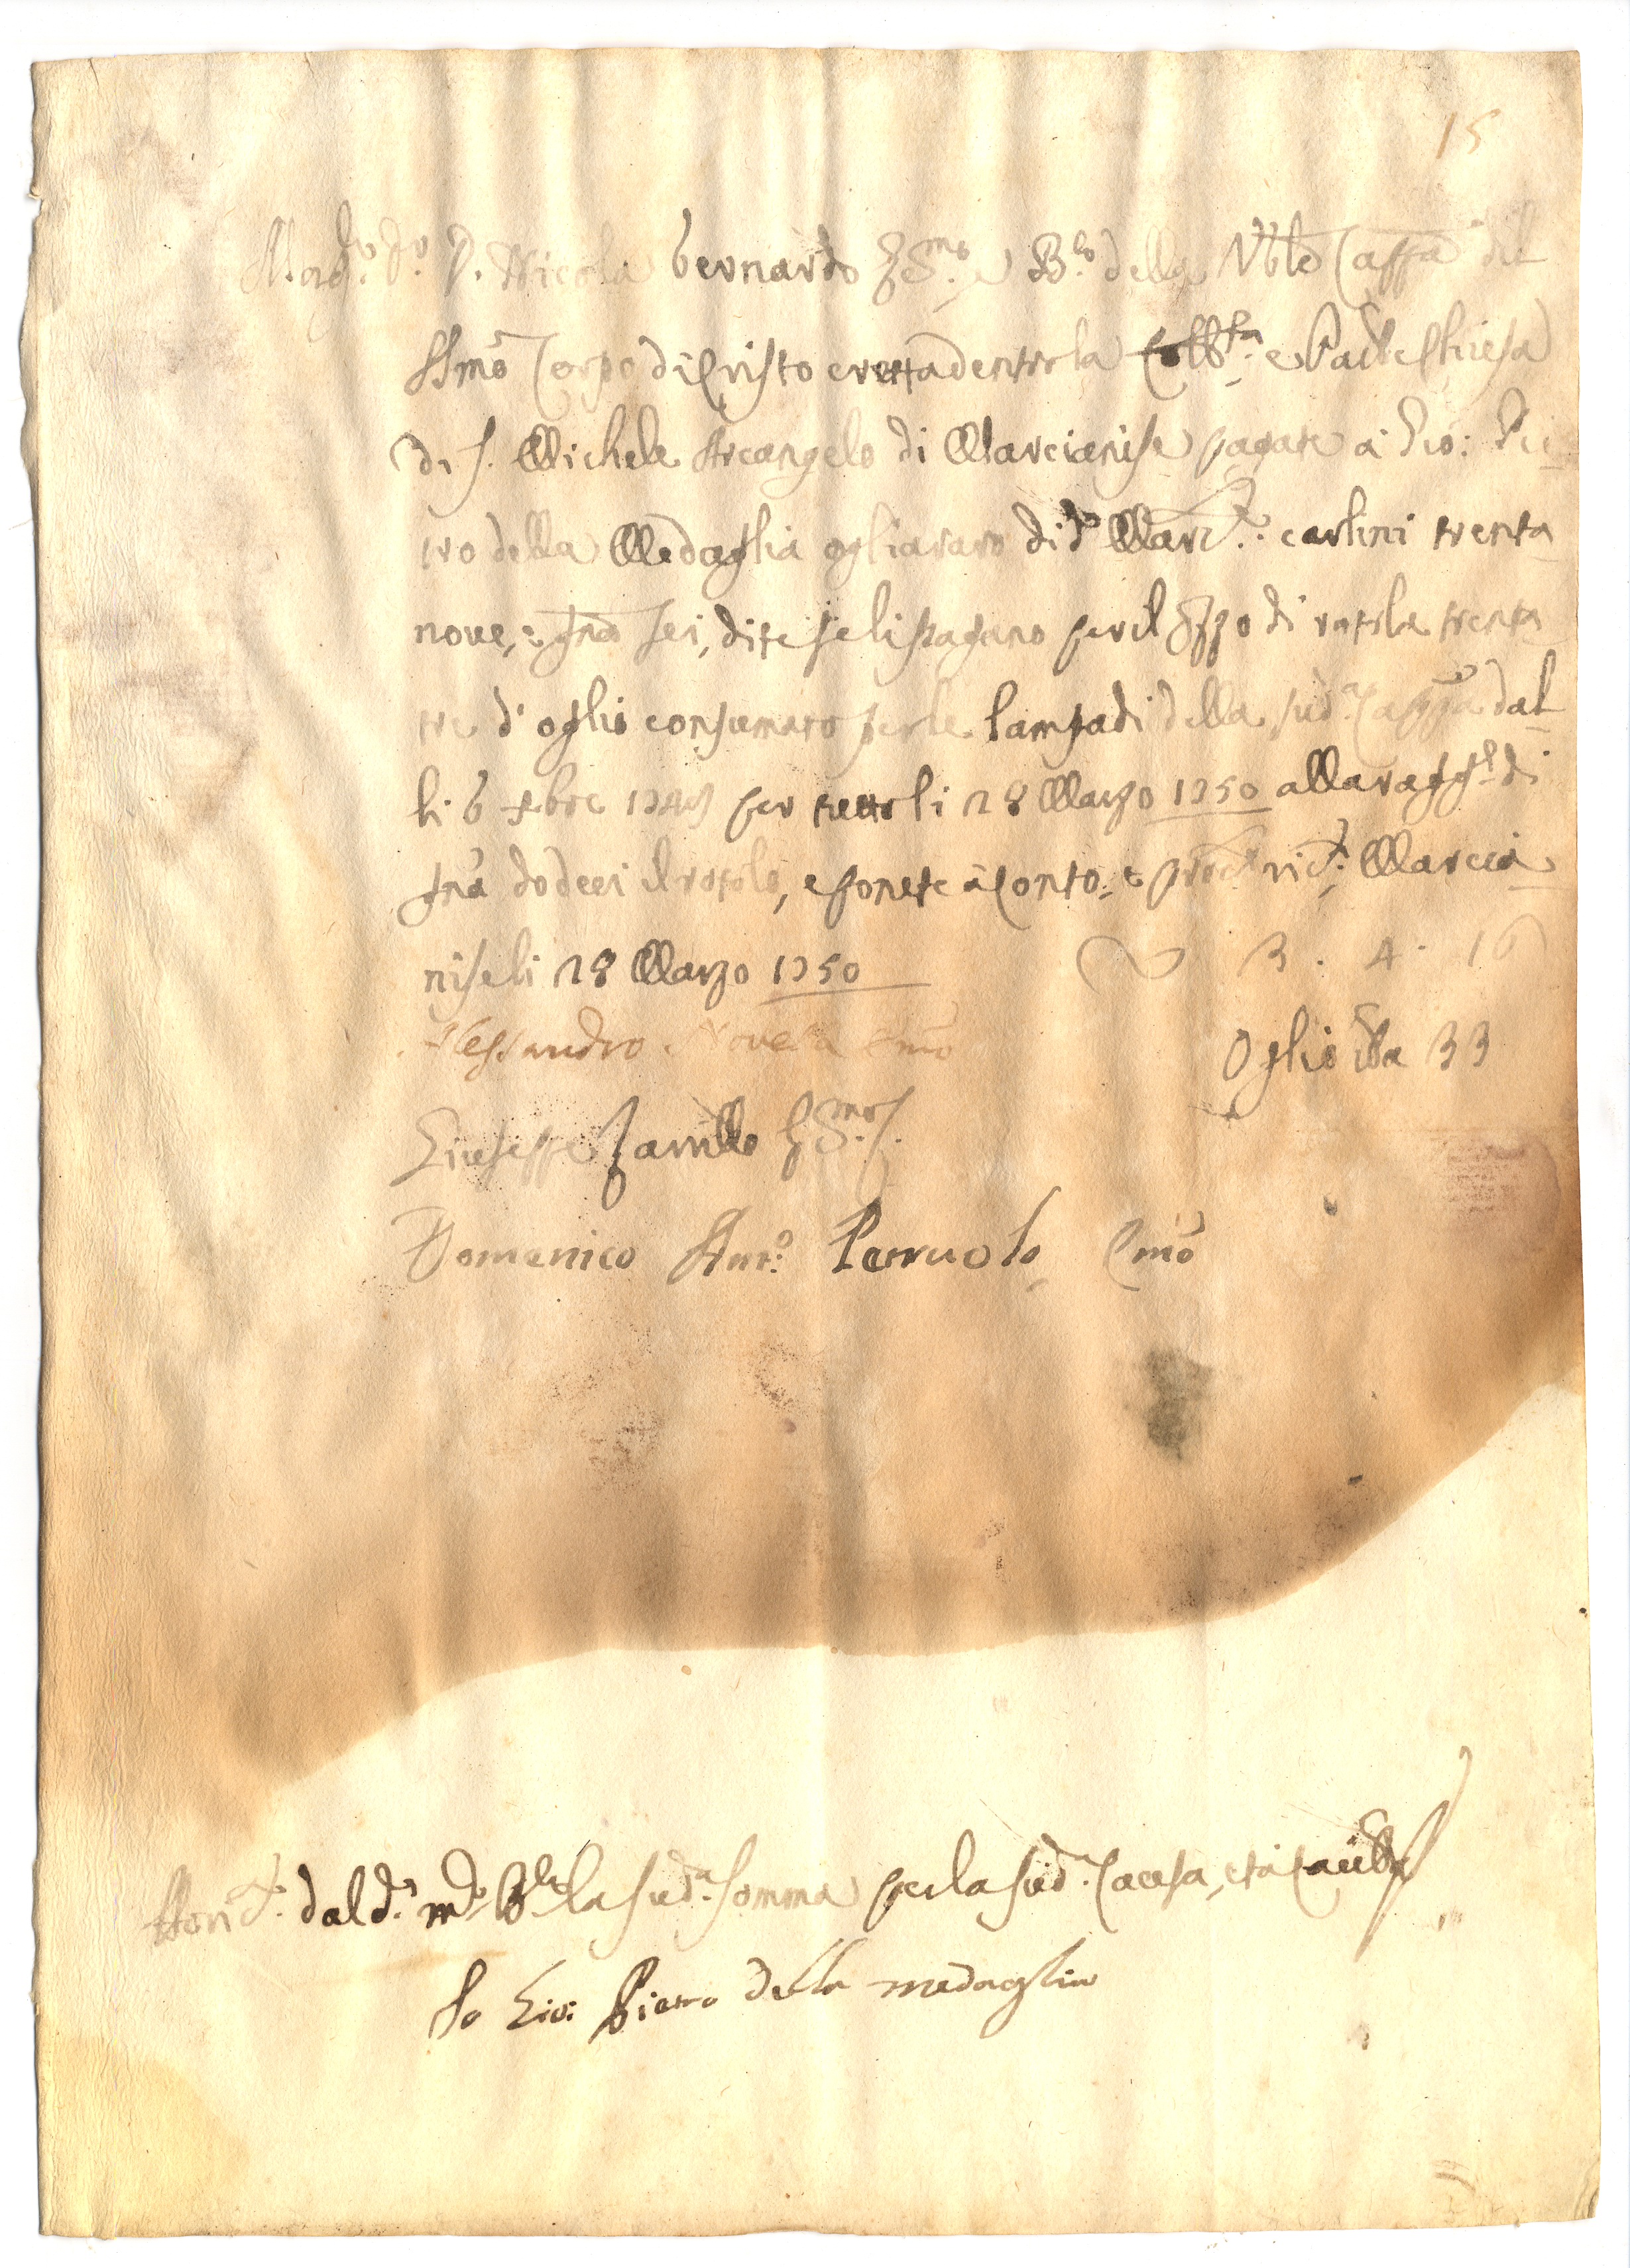 15
Mag.co Sig.r D. Nicola Bernardo E.mo e B.lo della V.ble Cappa del
SSmo Corpo di Cristo eretta dentro la Coll.ta e Par.le Chiesa
di S. Michele Arcangelo di Marcianise pagate à Gio: Pie=
tro della Medaglia ogliararo di d.o Marc.e: carlini trenta
nove, e gna sei, dite seli pagano per il prezzo di rotola trenta
tre d'oglio consumato per le lampadi della sud.a Cappa dal
li 6 7bre 1749 per tutto li 28 Marzo 1750 alla ragg.e di
gna dodeci il rotolo, e ponete à conto: Marcia
nise li 28 Marzo 1750 3 . 4 . 16
Alessandro Novella Emo
Oglio rla 33
Giuseppe Zarrillo E.mo
Domenico Ant.o Perruolo Emo
dal d.o m.co B.lo la sud.a somma per la sud.a Causa, et à Cautela
Io Gio: Pietro della medaglia